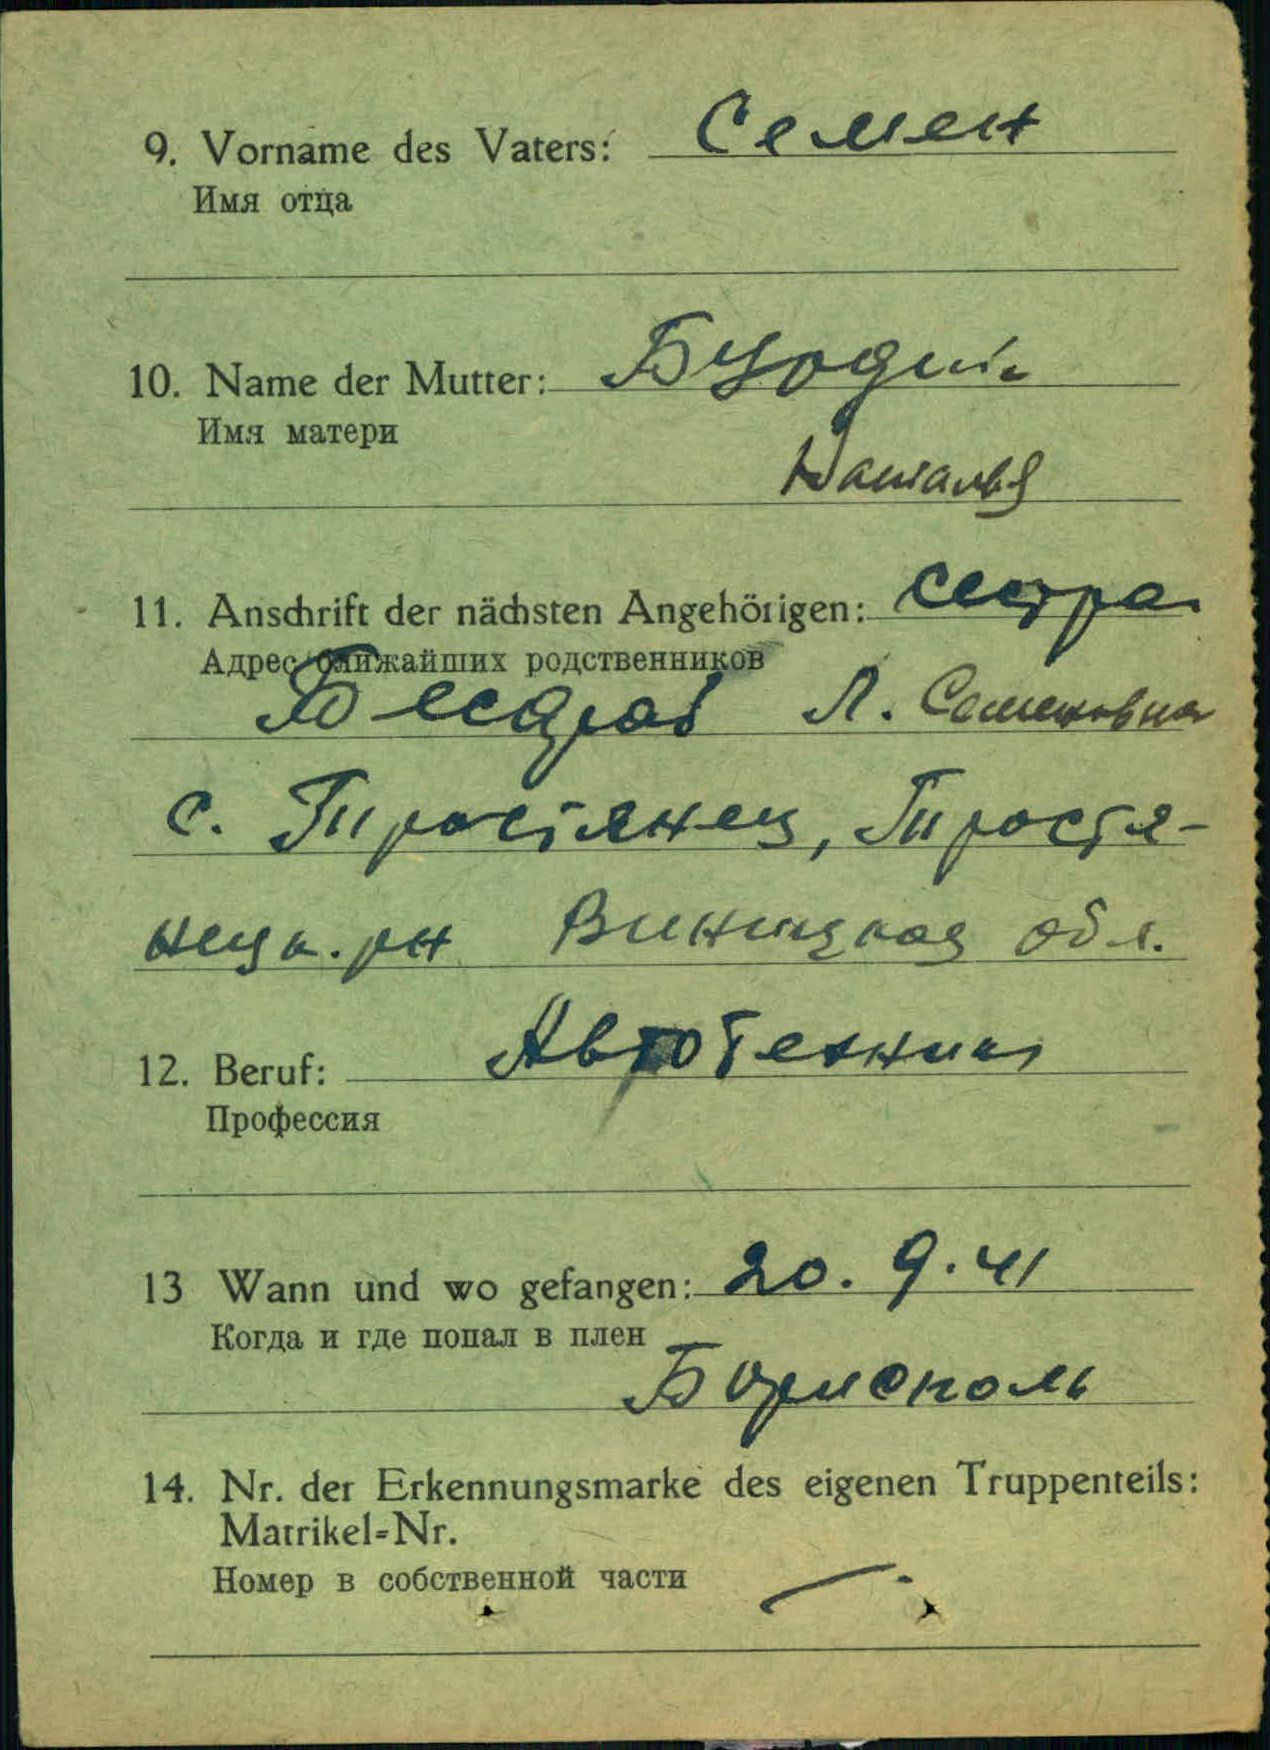 9. Vorname des Vaters: Семен
Имя отца
10. Name der Mutter:
Имя матери
Наталья
11. Anschrift der nächsten Angehörigen: сестра
Адрес ближайших родственников
Л. Семеновна
с. Тростянец, Тростя-
нецк. рн Виницкая обл.
12. Beruf: Автотехник
Профессия
13 Wann und wo gefangen: 20. 9. 41
Когда и где попал в плен
Борисполь
14. Nr. der Erkennungsmarke des eigenen Truppenteils:
Matrikel=Nr.
Номер в собственной части —